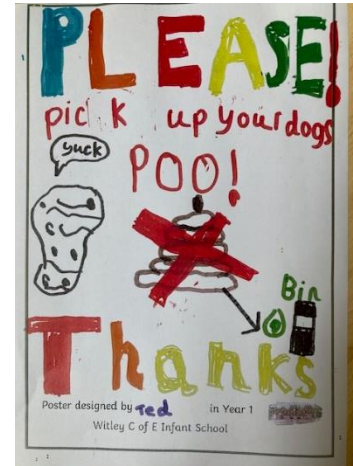 PLEASE!
pick up your dogs
yuck
POO!
Bin
Thanks
Poster designed by Ted in Year 1
Witley C of E Infant School